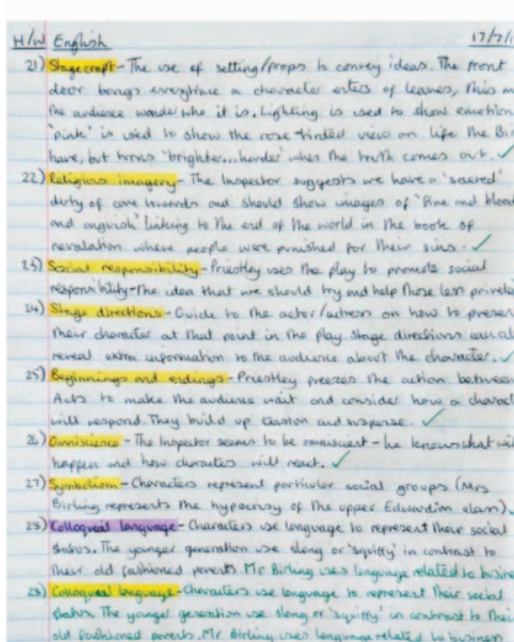 H/W English 17/2/1
21) Stagecraft - The use of setting/props to convey ideas. The front
door bangs everytime a character enters of leaves, this m
the audience wonder who it is. Lighting is used to show emotion
'pink' is used to show the rose-tinted view on life the Bir
have, but turns "brighter...harder" when the truth comes out. ✓
22) Religious imagery - The Inspector suggests we have a 'sacred'
duty of care towards and should show images of "fire and blood
and anguish" linking to the end of the world in the book of
revalation where people were punished for their sins. ✓
23) Social responsibility - Priestley uses the play to promote social
responsibility - the idea that we should try and help those less privele
24) Stage directions - Guide to the actor/actress on how to presen
their character at that point in the play. Stage directions can al
reveal extra information to the audience about the character. ✓
25) Beginnings and endings - Priestley freezes the action between
Acts to make the audience wait and consider how a charact
will respond. They build up tension and suspense. ✓
26) Omniscience - The Inspector seems to be omniscient - he knows what wil
happen and how characters will react. ✓
27) Symbolism - Characters represent particular social groups (Mrs
Birling represents the hypocrisy of the upper Edwardian class).
28) Colloquial language - Characters use language to represent their social
status. The younger generation use slang or 'squiffy' in contrast to
their old fashioned parents. Mr Birling uses language related to busine
28) Colloquial language - Characters use language to represent their social
status. The younger generation use slang or 'squiffy' in contrast to their
old fashioned parents. Mr Birling uses language related to business